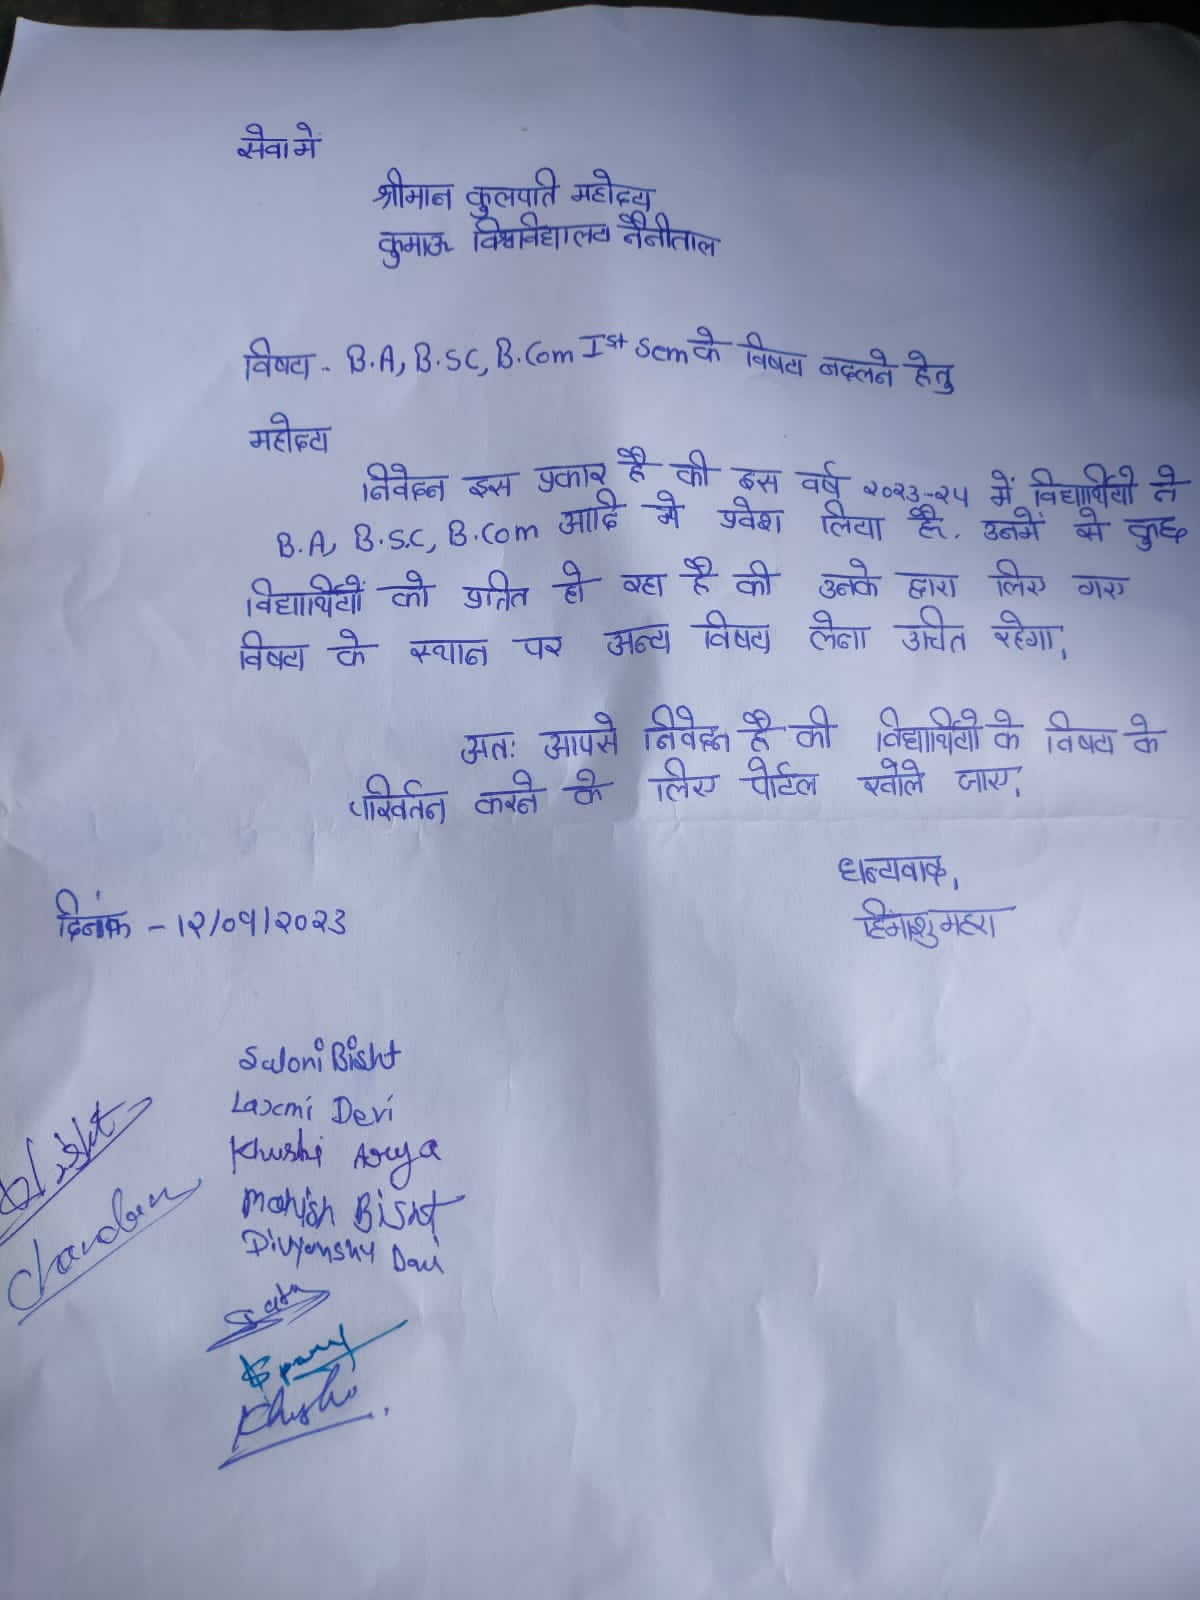 सेवा मे
श्रीमान कुलपति महोदय
कुमाऊ विश्वविद्यालय नैनीताल
विषय - B.A, B.SC, B.Com Ist Sem के विषय बदलने हेतु
महोदय
निवेदन इस प्रकार है की इस वर्ष २०२३-२४ में विद्यार्थियो ने
B.A, B.S.C, B.Com आदि मे प्रवेश लिया है. उनमें से कुछ
विद्यार्थियों को प्रतित हो रहा है की उनके द्वारा लिए गए
विषय के स्थान पर अन्य विषय लेना उचित रहेगा,
अतः आपसे निवेदन है की विद्यार्थियो के विषय के
परिवर्तन करने के लिए पोर्टल खोले जाए,
धन्यवाद,
दिनांक - १२/०९/२०२३
हिमांशु महरा
Saloni Bisht
Laxmi Devi
Khushi Arya
Manish Bisht
Divyanshu
Chandan